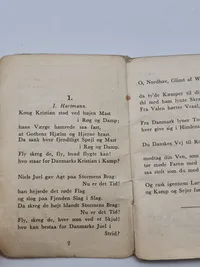 1.
J. Hartmann.
Kong Kristian stod ved højen Mast
i Røg og Damp;
hans Værge hamrede saa fast,
at Gothens Hjælm og Hjerne brast.
Da sank hver fjendtligt Spejl og Mast
i Røg og Damp.
Fly, skreg de, fly, hvad flygte kan!
hvo staar for Danmarks Kristian i Kamp?
Niels Juel gav Agt paa Stormens Brag:
Nu er det Tid!
han hejsede det røde Flag
og slog paa Fjenden Slag i Slag.
Da skreg de højt blandt Stormens Brag:
Nu er det Tid!
Fly, skreg de, hver som ved et Skjul!
hvo kan bestaa for Danmarks Juel i
Strid?
2
O, Nordhav, Glimt af W
da ty'de Kæmper til di
thi med ham lynte Skræ
Fra Valen hørtes Vraal,
Fra Danmark lyner T
hver give sig i Himlens
Du Danskes Vej til Ro
modtag din Ven, som
tør møde Faren med
saa stolt som du mod
Og rask igennem Lar
og Kamp og Sejer før